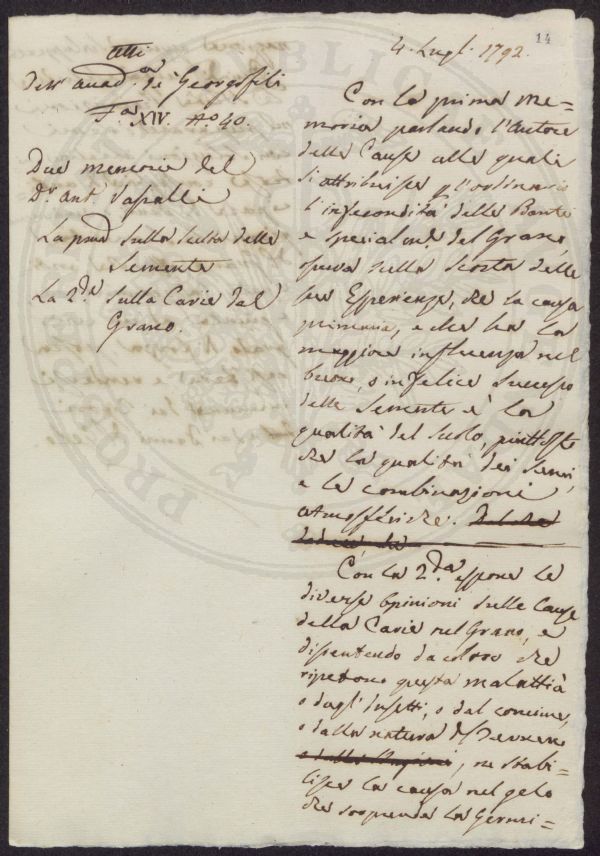 14
4. Lugl. 1792.
Atti
dell' Accad.ia de' Georgofili
F.a XIV. No 40.
Due memorie del
Dr. Ant. Sapalli
La pma sulla scelta delle
Semente
La 2da sulla Carie dal
Grano.
Con la prima me=
moria parlando l'Autore
delle Cause alle quali
si attribuisce p l'ordinario
l'infecondità delle Piante
e specialme. del Grano,
prova sulla scorta delle
sue Esperienze, che la causa
primaria, e che ha la
maggiore influenza nel
buono, o infelice successo
delle Semente è la
qualità del suolo, piuttosto
che la qualità dei semi,
e le combinazioni
atmosferiche.
Con la 2da espone le
diverse opinioni sulle Cause
della Carie nel Grano, e
dissentendo da coloro che
ripetono questa malattia
o dagl' Insetti, o dal concime,
o dalla natura del Terreno
, ne stabi=
lisce la causa nel gelo
che sorprende la Germi=